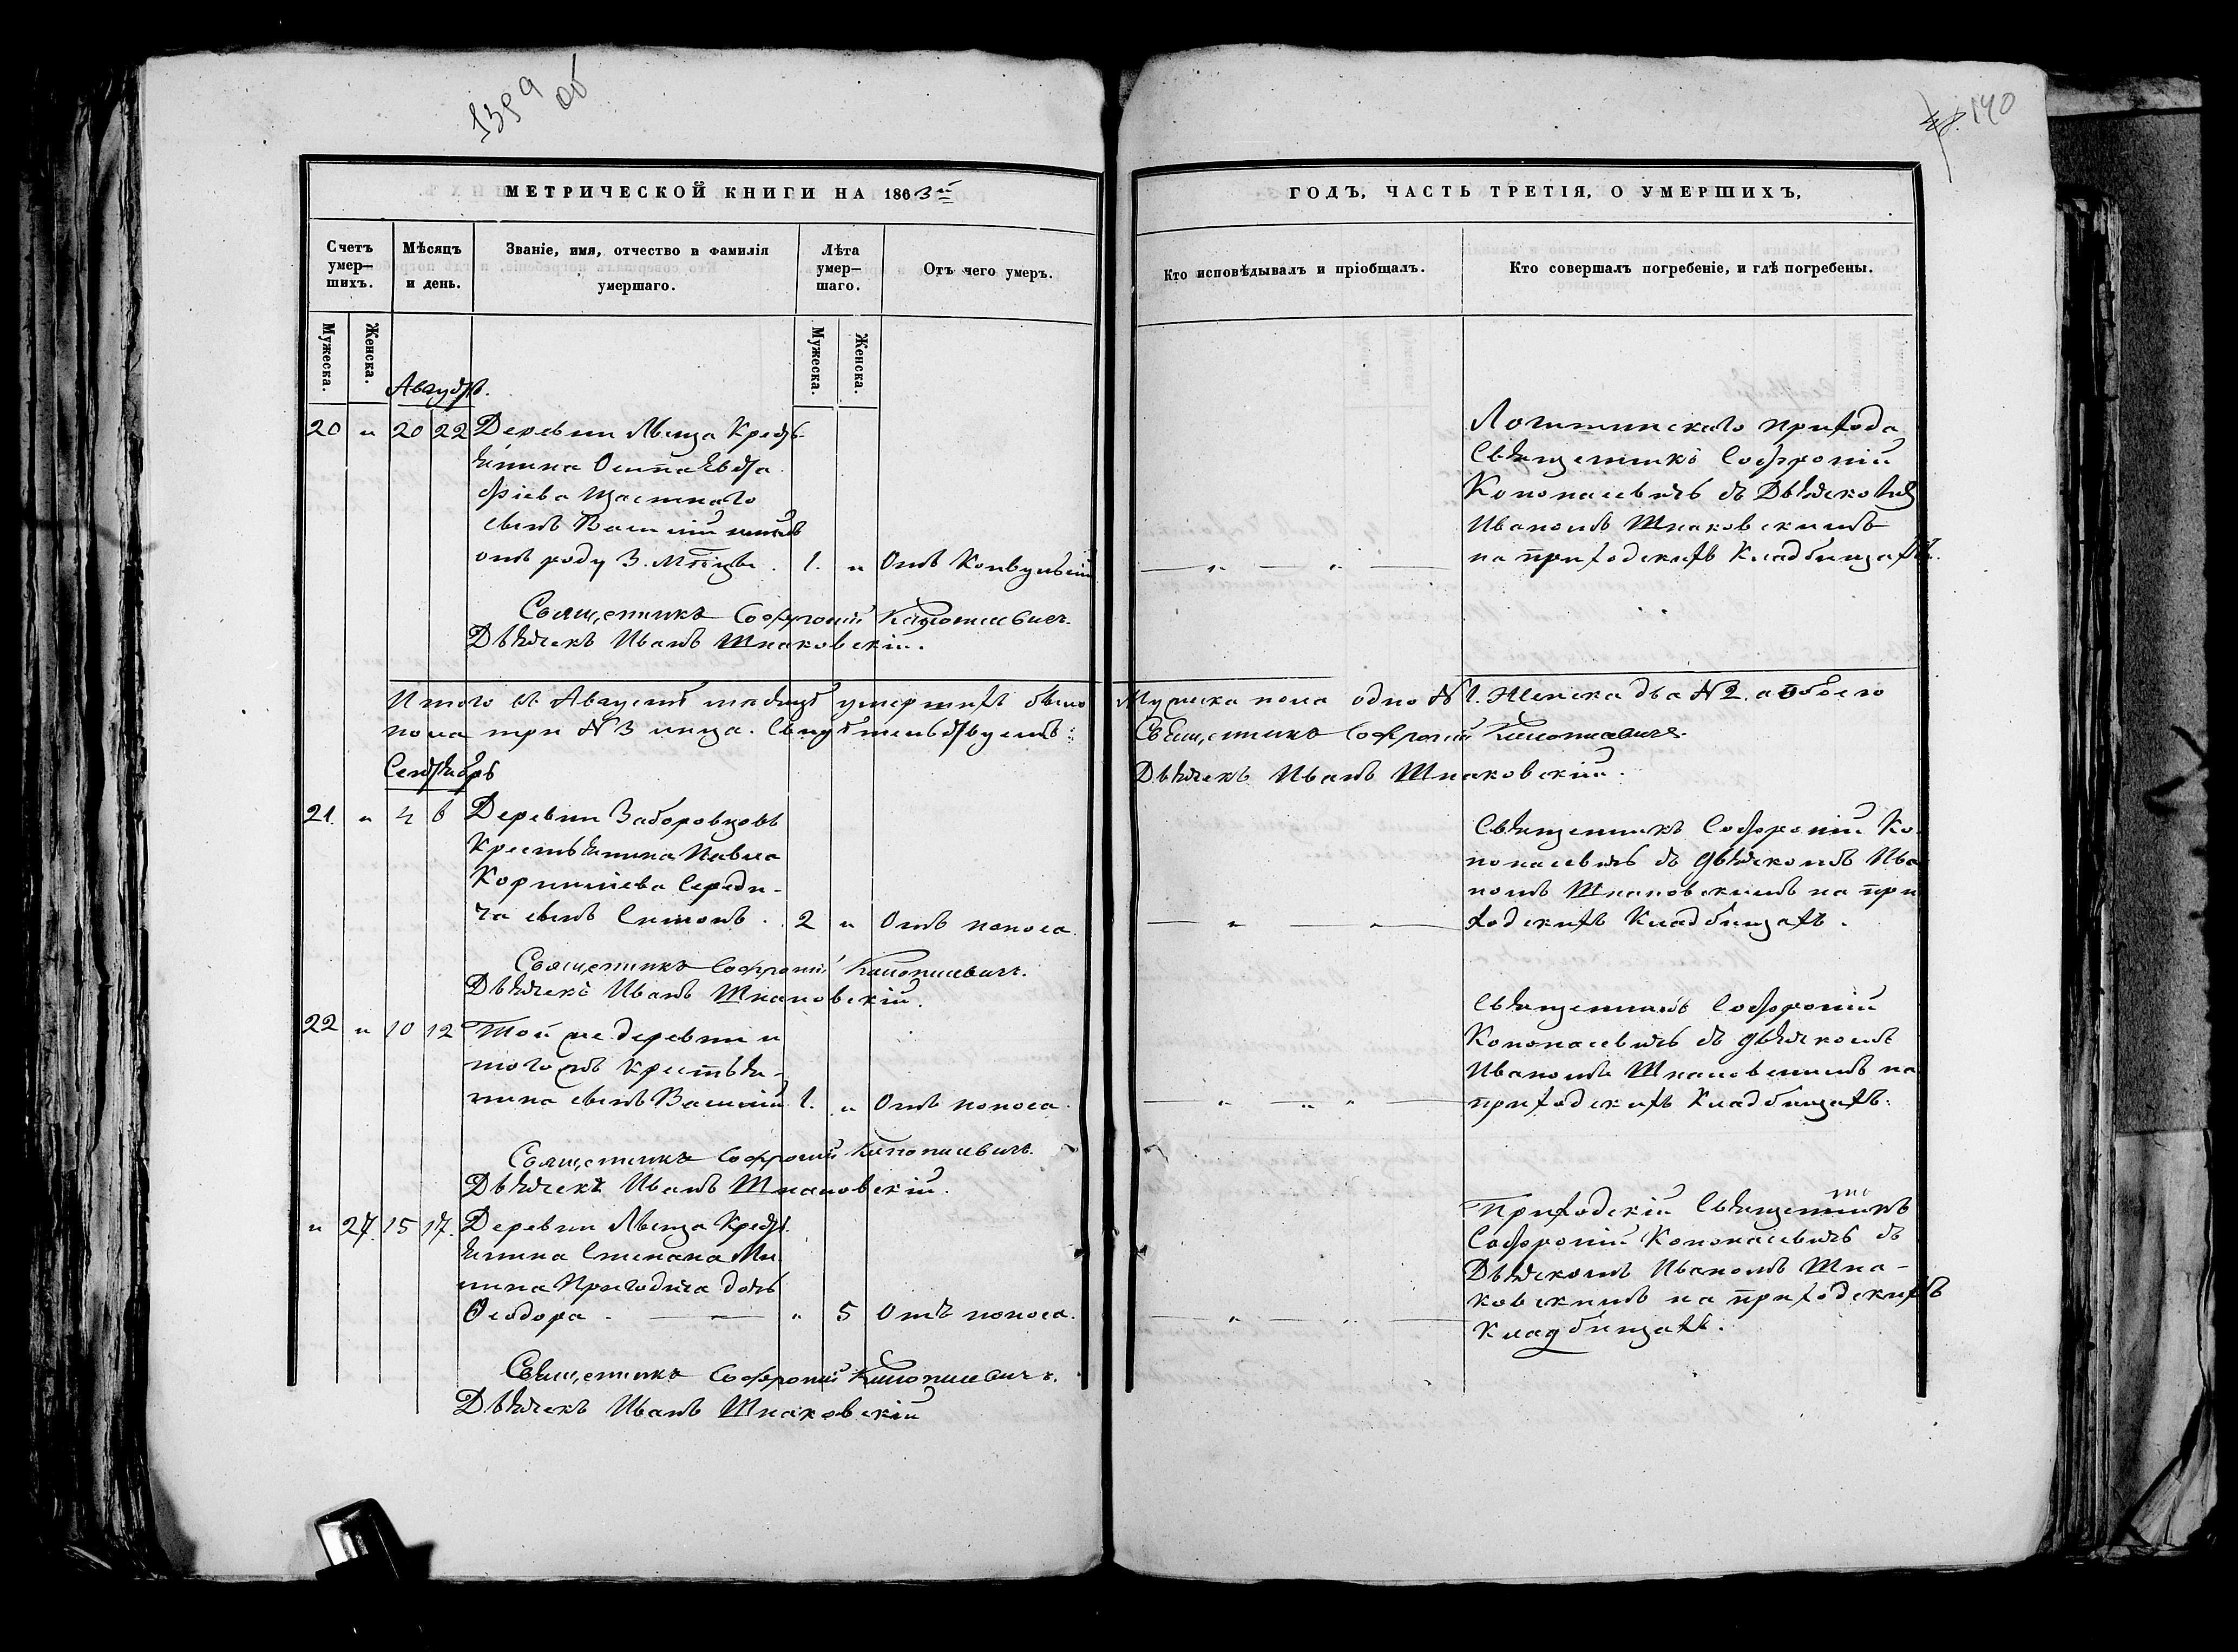 139 об
140
МЕТРИЧЕСКОЙ КНИГИ НА 1863й
ГОДЪ, ЧАСТЬ ТРЕТІЯ, О УМЕРШИХЪ,
Счетъ умер–шихъ.
Мѣсяцъ и день.
Званіе, имя, отчество и фамилія умершаго.
Лѣта умер–шаго.
Отъ чего умеръ.
Кто исповѣдывалъ и пріобщалъ.
Кто совершалъ погребеніе, и гдѣ погребены.
Мужеска.
Женска.
Мужеска.
Женска.
Августъ.
20 „ 20 22 Деревни Крест
янина Осипа Евста
фіева Щаснаго
сынъ Василій
отъ роду 3. 1. „ Отъ Конвульсій
Логишинскаго прихода
Священникъ Софроній
Кононасевичъ съ Дьячкомъ
Иваномъ Шпаковскимъ
на приходскихъ Кладбищахъ.
Священникъ Софроній
Дьячекъ Иванъ Шпаковскій.
Итого въ Августѣ мѣсяцѣ умершихъ было
Мужеска пола одно № 1. Женска два № 2. а обоего
пола три № 3 лица. Свидѣтельствуемъ:
Священникъ Софроній
Дьячекъ Иванъ Шпаковскій.
Сентябрь
21. „ 4 6 Деревни Заборовцовъ
Крестьянина Павла
Корнилієва Середи-
ча сынъ Симонъ. 2 „ Отъ поноса.
Священникъ Софроній Ко
нонасевичъ съ дьячкомъ Ива
номъ Шпаковскимъ на при
ходскихъ Кладбищахъ.
Священникъ Софроній
Дьячекъ Иванъ Шпаковскій.
22 „ 10 12 Той же деревни и
того жъ крестья-
нина сынъ Василій 1. „ Отъ поноса.
Священникъ Софроній
Кононасевичъ съ дьячкомъ
Иваномъ Шпаковскимъ на
приходскихъ Кладбищахъ.
Священникъ Софроній
Дьячекъ Иванъ Шпаковскій.
„ 27. 15 17. Деревни Крест
янина Степана Ми
нина Пригодича дочь
Ѳеодора. „ 5 Отъ поноса.
Приходскій Священникъ
Софроній Кононасевичъ съ
Дьячкомъ Иваномъ Шпа-
ковскимъ на приходскихъ
Кладбищахъ.
Священникъ Софроній
Дьячекъ Иванъ Шпаковскій